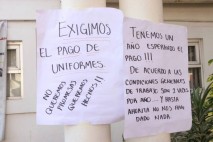 EXIGIMOS
EL PAGO DE
UNIFORMES.
NO
QUEREMOS
PROMESAS
QUEREMOS
HECHOS!!
TENEMOS UN
AÑO ESPERANDO EL
PAGO!!!
DE ACUERDO A LAS
CONDICIONES GENERALES
DE TRABAJO SON 2 VECES
POR AÑO Y HASTA
AHORITA NO NOS HAN
DADO NADA